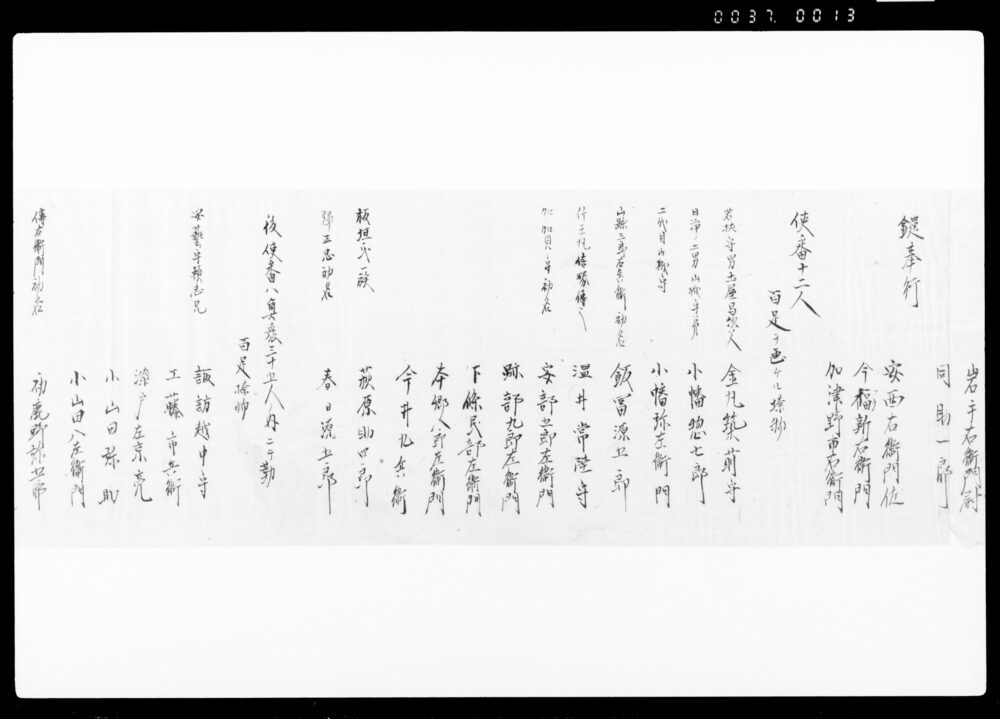 0037. 0013
岩手右衛門尉
同助一郎
鎗奉行
安西右衛門佐
今福新右衛門
加津野市右衛門
使番十二人
百足ヲ画ケル
若狭守男土屋昌
金丸筑前守
日浄二男山城守
小幡惣七郎
二代目山城守
小幡弥左衛門
山縣三郎右兵衛初名
飯冨源五郎
温井常陸守
加賀守初名
安部五郎左衛門
跡部九郎左衛門
下條民部左衛門
本郷八郎左衛門
今井九兵衛
板垣氏族
荻原助四郎
弾正忠初名
春日源五郎
後使番八員三十五人ノ内ニテ勤
百足
諏訪越中守
安藝守頼忠兄
工藤市兵衛
左京亮
小山田弥助
小山田八左衛門
傳右衛門初名
初鹿野弥五郎